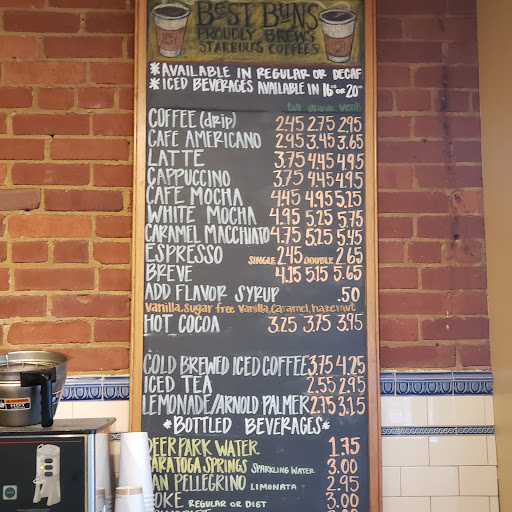 BEST BUNS
PROUDLY BREWS
STARBUCKS COFFEES
*AVAILABLE IN REGULAR OR DECAF
*ICED BEVERAGES AVAILABLE IN 16" OR 20"
tall grande venti
COFFEE (drip) 2.45 2.75 2.95
CAFE AMERICANO 2.95 3.45 3.65
LATTE 3.75 4.45 4.95
CAPPUCCINO 3.75 4.45 4.95
CAFE MOCHA 4.45 4.95 5.25
WHITE MOCHA 4.95 5.25 5.75
CARAMEL MACCHIATO 4.75 5.25 5.45
ESPRESSO SINGLE 2.45 DOUBLE 2.65
BREVE 4.15 5.15 5.65
ADD FLAVOR SYRUP .50
vanilla, sugar free vanilla, caramel, hazelnut
HOT COCOA 3.25 3.75 3.95
COLD BREWED ICED COFFEE 3.75 4.25
ICED TEA 2.55 2.95
LEMONADE/ARNOLD PALMER 2.75 3.15
*BOTTLED BEVERAGES*
DEER PARK WATER 1.75
SARATOGA SPRINGS SPARKLING WATER 3.00
SAN PELLEGRINO LIMONATA 2.95
COKE REGULAR OR DIET 3.00